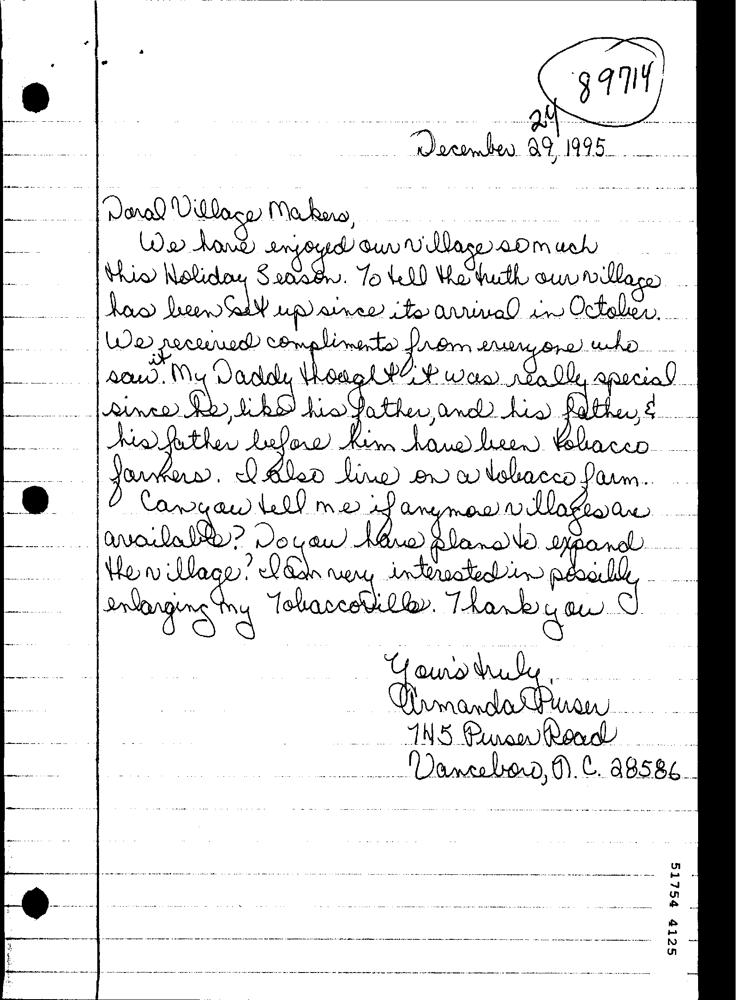 89714
24
December 29, 1995
Doral Village Makers,
We have enjoyed our village so much
this Holiday Season. To tell the truth our village
has been set up since its arrival in October.
We received compliments from everyone who
saw it. My Daddy thought it was really special
since he, like his father, and his father, &
his father before him have been tobacco
farmers. I also live on a tobacco farm.
Can you tell me if anymore villages are
available? Do you have plans to expand
the village? I am very interested in possibly
enlarging my Tobaccoville. Thank you
Your's truly,
Armanda Purser
Purser Road
Vanceboro, N.C. 28586
51754 4125